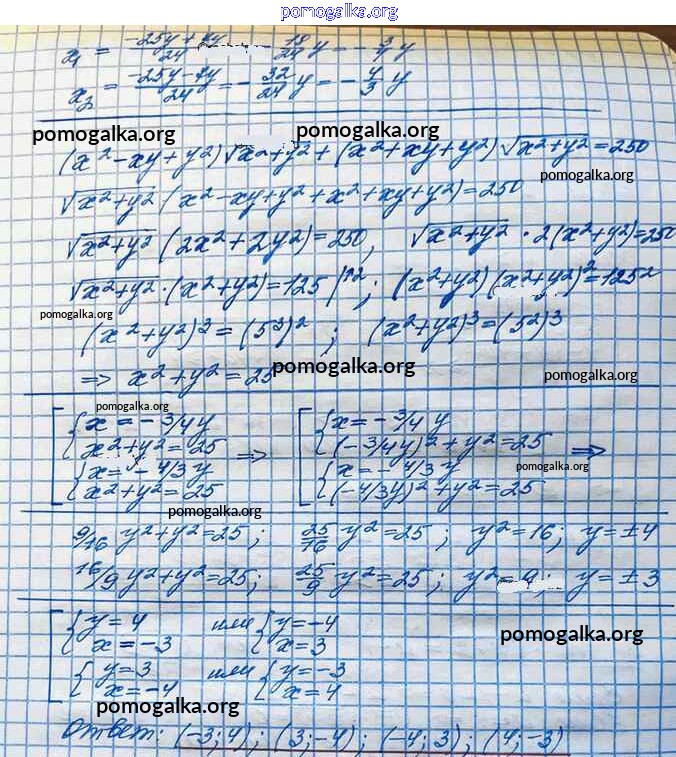 pomogalka.org
x₁ = (-25y + 7y)/24 = - 18/24 y = - 3/4 y
x₂ = (-25y - 7y)/24 = - 32/24 y = - 4/3 y
pomogalka.org pomogalka.org
(x² - xy + y²) √x² + y² + (x² + xy + y²) √x² + y² = 250
pomogalka.org
√x² + y² (x² - xy + y² + x² + xy + y²) = 250
√x² + y² (2x² + 2y²) = 250, √x² + y² · 2(x² + y²) = 250
√x² + y² · (x² + y²) = 125 |↑2; (x² + y²)(x² + y²)² = 125²
pomogalka.org
(x² + y²)³ = (5³)²; (x² + y²)³ = (5²)³
pomogalka.org
⇒ x² + y² = 25
pomogalka.org
pomogalka.org
[ { x = - 3/4 y [ { x = - 3/4 y
x² + y² = 25 ⇒ (-3/4 y)² + y² = 25 ⇒
{ x = - 4/3 y { x = - 4/3 y
pomogalka.org
x² + y² = 25 (-4/3 y)² + y² = 25
pomogalka.org
9/16 y² + y² = 25; 25/16 y² = 25; y² = 16; y = ±4
16/9 y² + y² = 25; 25/9 y² = 25; y² = 9; y = ±3
[ { y = 4 или { y = -4
x = -3 x = 3
pomogalka.org
{ y = 3 или { y = -3
x = -4 x = 4
pomogalka.org
Ответ: (-3; 4); (3; -4); (-4; 3); (4; -3)